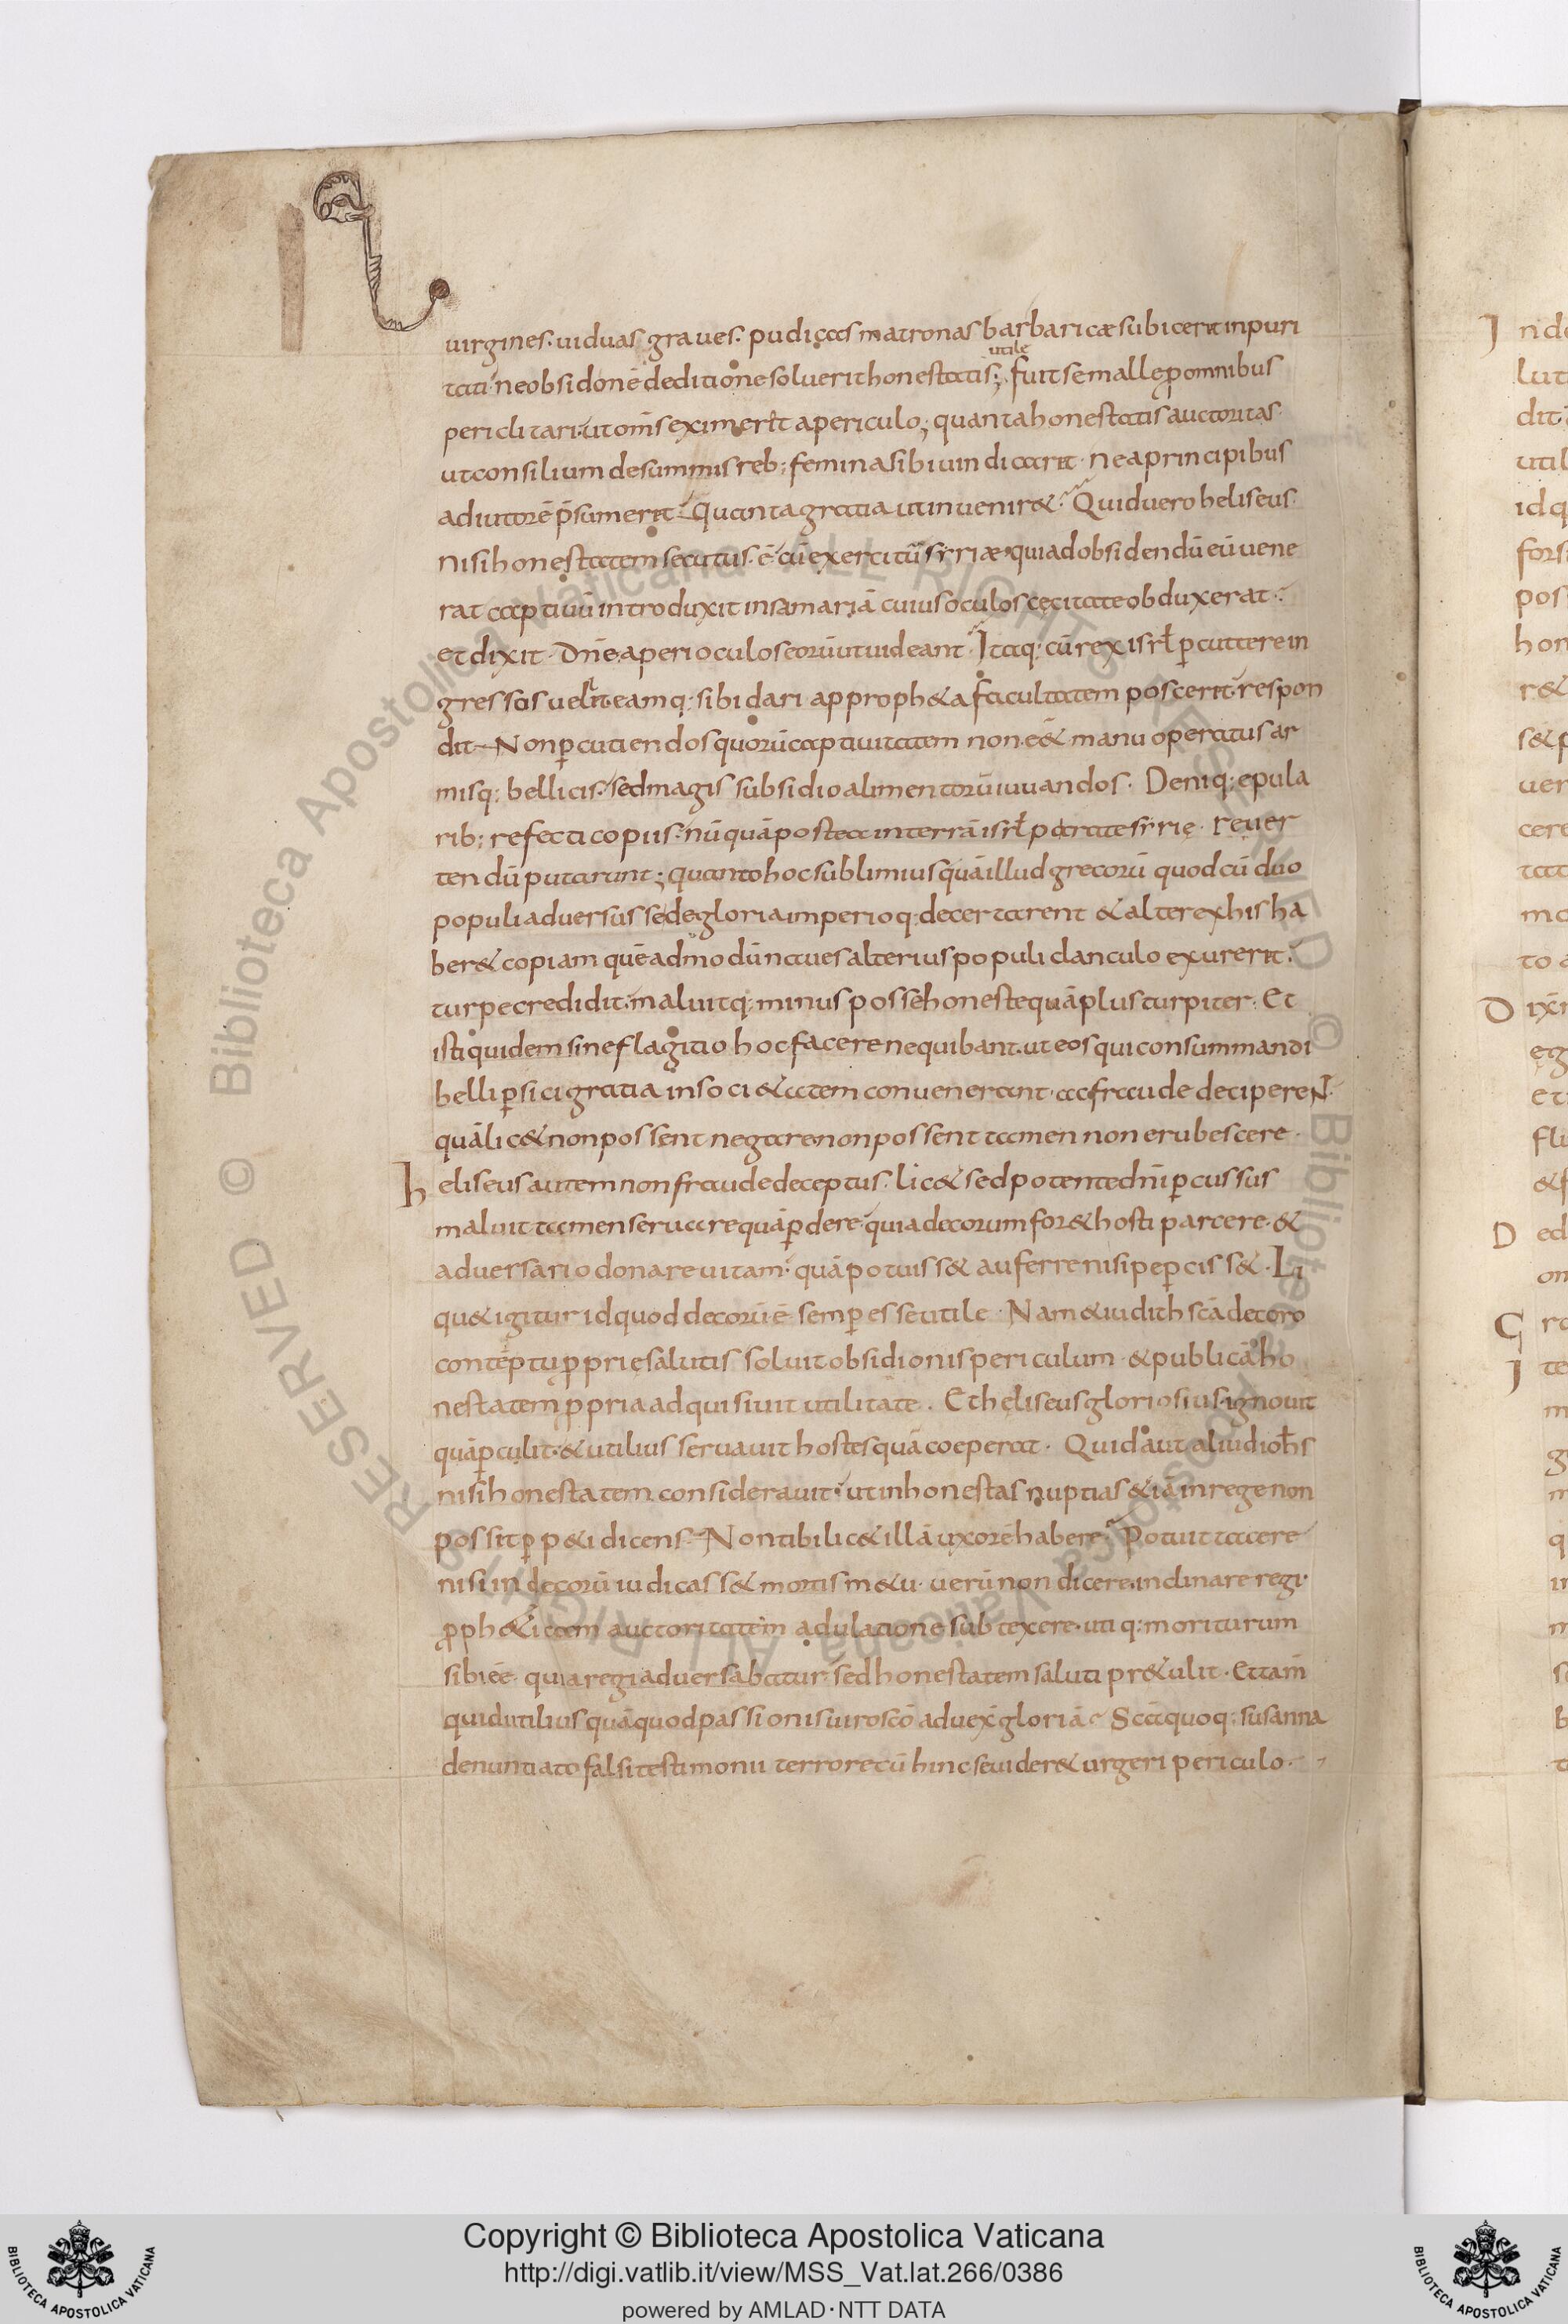 uirgines. uiduas graues. pudicas matronas barbaricæ subicerit inpuri
tati ne obsidonē deditione soluerit honestatis; fuit se malle ꝑ omnibus
utile
periclitari. ut om̅s eximerit a periculo; quanta honestatis auctoritas.
ut consilium de summis reb; femina sibi uindicarit. ne a principibus
adiutorē p̄sumerit. quanta gratia ut inuenir&. Quid uero heliseus.
nisi honestatem secutus. ē. cū exercitū syriæ. qui ad obsidendū eū uene
rat captiuū introduxit in samariā cuius oculos cęcitate obduxerat.
et dixit. dn̄e. aperi oculos eorū ut uideant. Itaq; cū rex isrł ꝑcuttere in
gressos uelit. eamq; sibi dari a proph&a facultatem poscerit. respon
dit. Non ꝑcutiendos quorū captiuitatem non. e&́ manu operatus ar
misq; bellicis. sed magis subsidio alimentorū iuuandos. Deniq; epula
rib; refecti copiis. nūquā postea in terrā isrł piratę syrię. reuer
tendū putarunt; quanto hoc sublimius quā illud grecorū quod cū duo
populi aduersus se de gloria imperioq; decertarent & alter ex his ha
ber& copiam quēadmodū naues alterius populi clanculo exurerit.
turpe credidit. maluitq; minus posse honeste quā plus turpiter. Et
isti quidem sine flagitio hoc facere nequibant. ut eos qui consummandi
belli ꝑsici gratia in soci&atem conuenerant. ac fraude deciperent.
quā lic& non possent negare. non possent tamen non erubescere.
heliseus autem non fraude deceptus. lic& sed potentę dn̄i ꝑcussus
maluit tamen seruare quā ꝑdere. quia decorum for& hosti parcere. &
aduersario donare uitam. quā potuiss& auferre nisi peꝑciss&. Li
qu& igitur id quod decorū ē semꝑ esse utile. Nam & iudith sc̄a decoro
contēptu ꝓprię salutis soluit obsidionis periculum. & publicā ho
nestatem ꝓpria adquisiuit utilitate. Et heliseus gloriosius ignouit
quā ꝑculit. & utilius seruauit hostes quā coeperat. Quid aut aliud ioh̄s
nisi honestatem considerauit. ut inhonestas nuptias &iā in rege non
possit ꝑp&i dicens. Non tibi lic& illā uxorē habere. Potuit tacere
nisi indecorū iudicass& mortis m&u. uerū non dicere. inclinare regi.
ꝓph&icam auctoritatem adulatione subtexere. utiq; moriturum
sibi eē. quia regi aduersabatur. sed honestatem saluti pr&ulit. Et tam̄
quid utilius quā quod passionis uiro scō aduex̄ gloriā. Scā quoq; susanna
denuntiato falsi testimonii terrore cū hinc se uider& urgeri periculo.
Copyright © Biblioteca Apostolica Vaticana
http://digi.vatlib.it/view/MSS_Vat.lat.266/0386
powered by AMLAD·NTT DATA